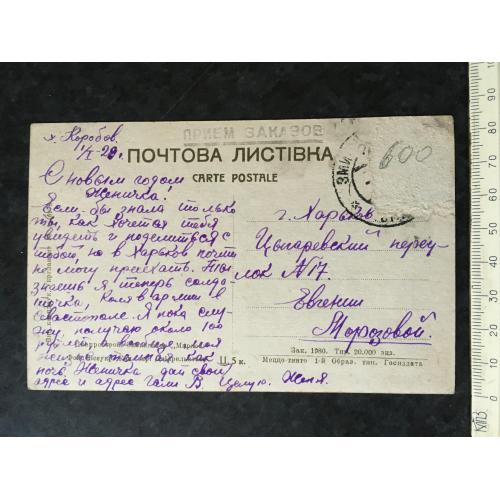 х. Коробов.
1/I-29г.
ПРИЕМ ЗАКАЗОВ
ПОЧТОВА ЛИСТІВКА
CARTE POSTALE
600
ЗМИ
С новым годом
Женичка!
если-бы знала только
ты, как хочется тебя
увидеть и поделиться с
тобой, но в Харьков почти
не могу приехать. Ты
знаешь я теперь солда-
точка, Коля в армии в
Севастополе. Я пока слу-
жу, получаю около 100
рублей
как
ног. Женичка дай свой
адрес и адрес Гали В. Целую. Женя.
г. Харьков
Цыгаревский переу-
лок N17.
Евгении
Морозовой.
Ц. 5 к.
Зак. 1980. Тир. 20.000 экз.
Меццо-тинто 1-й Образ. тип. Госиздата